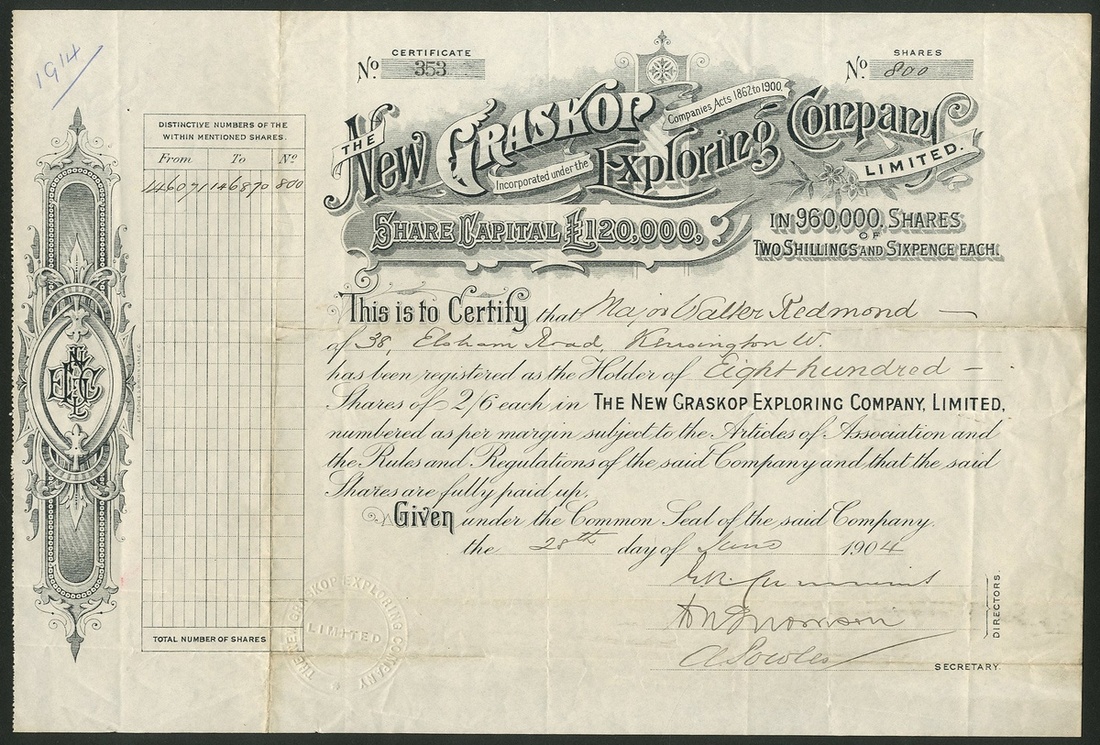 1914
CERTIFICATE
No. 353
SHARES
No. 800
THE New Graskop Exploring Company LIMITED.
Incorporated under the Companies Acts 1862 to 1900.
SHARE CAPITAL £120,000,
IN 960,000, SHARES
OF
TWO SHILLINGS AND SIXPENCE EACH.
DISTINCTIVE NUMBERS OF THE
WITHIN MENTIONED SHARES.
From To No.
146071 146870 800
TOTAL NUMBER OF SHARES
This is to Certify that Major Walter Redmond
of 38, Elsham Road, Kensington W.
has been registered as the Holder of Eight hundred
Shares of 2/6 each in THE NEW GRASKOP EXPLORING COMPANY, LIMITED,
numbered as per margin subject to the Articles of Association and
the Rules and Regulations of the said Company and that the said
Shares are fully paid up.
Given under the Common Seal of the said Company.
the 28th day of June 1904
DIRECTORS.
SECRETARY.
THE NEW GRASKOP EXPLORING COMPANY
LIMITED